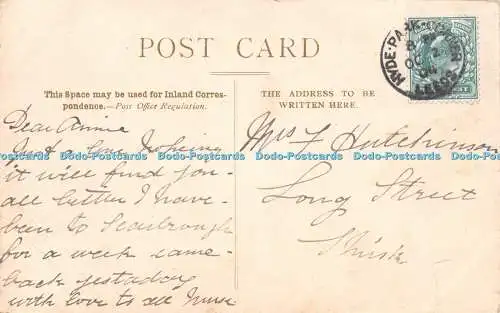 POST CARD
HYDE-PARK-CORNER
LEEDS
This Space may be used for Inland Corres-
pondence.—Post Office Regulation.
THE ADDRESS TO BE
WRITTEN HERE.
Dear Annie
Just a line hoping
it will find you
all better I have
been to Scarbrough
for a week came
back yestaday
with love to all
Mrs F Hutchinson
Long Street
Thirsk
Dodo-Postcards Dodo-Postcards Dodo-Postcards Dodo-Postcards Dodo-Postcards